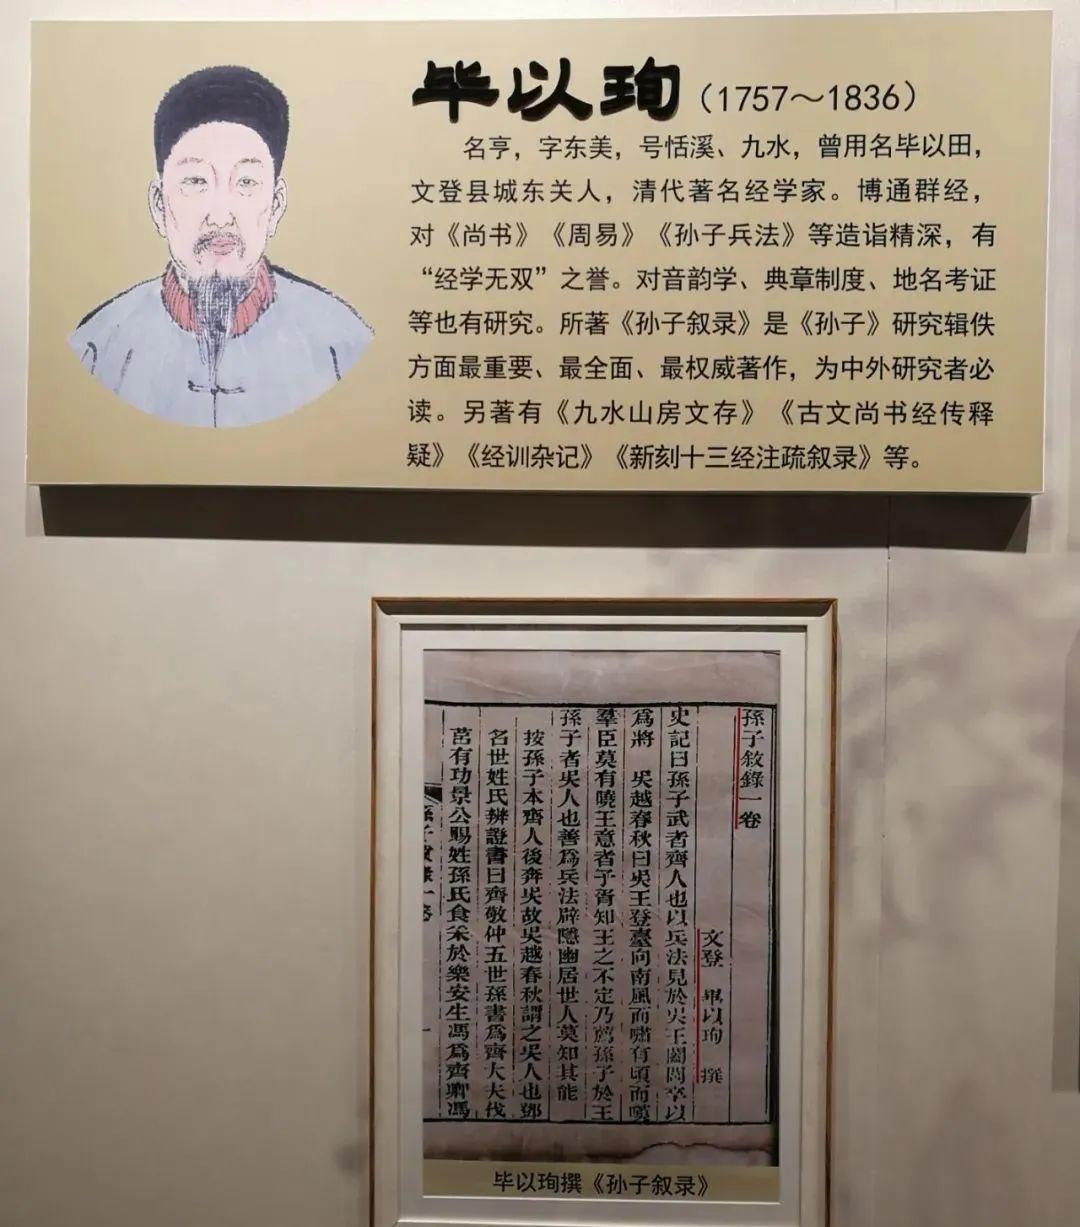 毕以珣（1757～1836）
名亨，字东美，号恬溪、九水，曾用名毕以田，
文登县城东关人，清代著名经学家。博通群经，
对《尚书》《周易》《孙子兵法》等造诣精深，有
“经学无双”之誉。对音韵学、典章制度、地名考证
等也有研究。所著《孙子叙录》是《孙子》研究辑佚
方面最重要、最全面、最权威著作，为中外研究者必
读。另著有《九水山房文存》《古文尚书经传释
疑》《经训杂记》《新刻十三经注疏叙录》等。
孫子敘錄一卷
文登 畢以珣 撰
史記曰孫子武者齊人也以兵法見於吳王闔閭卒以
爲將 吳越春秋曰吳王登臺向南風而嘯有頃而嘆
羣臣莫有曉王意者子胥知王之不定乃薦孫子於王
孫子者吳人也善爲兵法辟隱幽居世人莫知其能
按孫子本齊人後奔吳故吳越春秋謂之吳人也鄧
名世姓氏辨證書曰齊敬仲五世孫書爲齊大夫伐
莒有功景公賜姓孫氏食采於樂安生馮爲齊卿馮
毕以珣撰《孙子叙录》